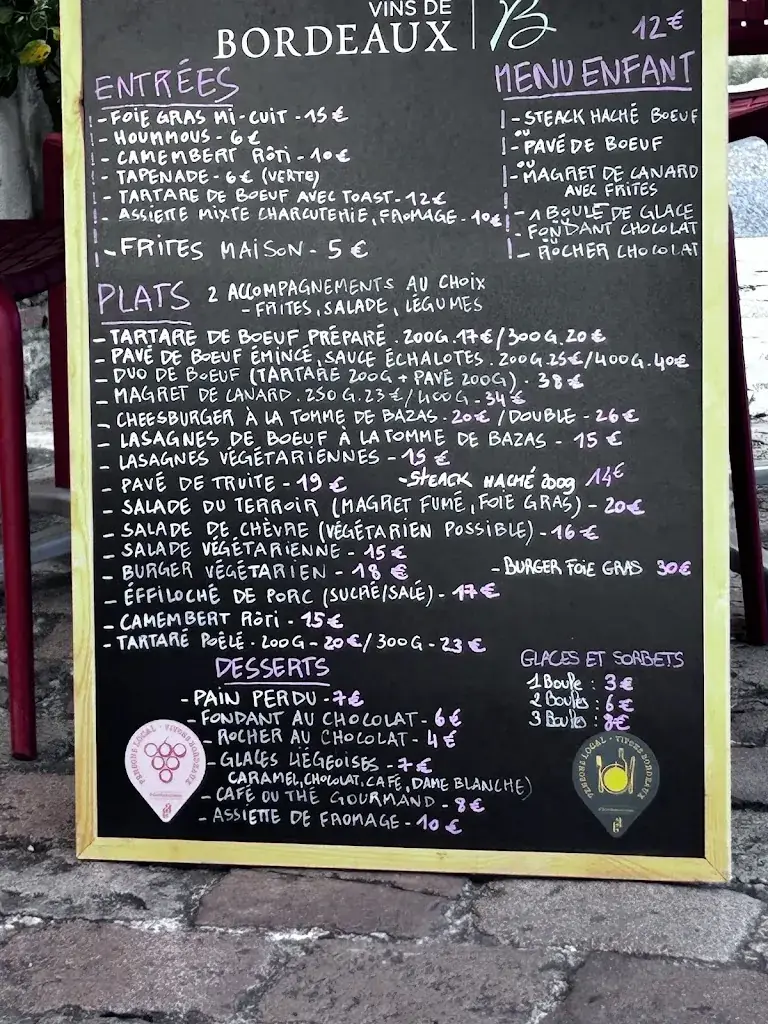 VINS DE
BORDEAUX
B
12€
ENTRÉES
- FOIE GRAS MI-CUIT - 15€
- HOUMMOUS - 6€
- CAMEMBERT RÔTI - 10€
- TAPENADE - 6€ (VERTE)
- TARTARE DE BOEUF AVEC TOAST - 12€
- ASSIETTE MIXTE CHARCUTERIE, FROMAGE - 10€
- FRITES MAISON - 5€
MENU ENFANT
- STEACK HACHÉ BOEUF
ou
- PAVÉ DE BOEUF
ou
- MAGRET DE CANARD
AVEC FRITES
- 1 BOULE DE GLACE
- FONDANT CHOCOLAT
ou
- ROCHER CHOCOLAT
PLATS 2 ACCOMPAGNEMENTS AU CHOIX
- FRITES, SALADE, LÉGUMES
- TARTARE DE BOEUF PRÉPARÉ . 200G. 17€ / 300G. 20€
- PAVÉ DE BOEUF ÉMINCÉ, SAUCE ÉCHALOTES . 200G. 25€ / 400G. 40€
- DUO DE BOEUF (TARTARE 200G + PAVÉ 200G) . 38€
- MAGRET DE CANARD . 250G. 23€ / 400G - 34€
- CHEESBURGER À LA TOMME DE BAZAS - 20€ / DOUBLE - 26€
- LASAGNES DE BOEUF À LA TOMME DE BAZAS - 15€
- LASAGNES VÉGÉTARIENNES - 15€
- PAVÉ DE TRUITE - 19€ - STEACK HACHÉ 200g 14€
- SALADE DU TERROIR (MAGRET FUMÉ, FOIE GRAS) - 20€
- SALADE DE CHÈVRE (VÉGÉTARIEN POSSIBLE) - 16€
- SALADE VÉGÉTARIENNE - 15€
- BURGER VÉGÉTARIEN - 18€ - BURGER FOIE GRAS 30€
- ÉFFILOCHÉ DE PORC (SUCRÉ/SALÉ) - 17€
- CAMEMBERT RÔTI - 15€
- TARTARE POÊLÉ . 200G - 20€ / 300G - 23€
DESSERTS
- PAIN PERDU - 7€
- FONDANT AU CHOCOLAT - 6€
- ROCHER AU CHOCOLAT - 4€
- GLACES LIÉGEOISES - 7€
CARAMEL, CHOCOLAT, CAFÉ, DAME BLANCHE)
- CAFÉ OU THÉ GOURMAND - 8€
- ASSIETTE DE FROMAGE - 10€
GLACES ET SORBETS
1 Boule : 3€
2 Boules : 6€
3 Boules : 8€
PENSONS LOCAL · VIVONS BORDEAUX
PENSONS LOCAL · VIVONS BORDEAUX